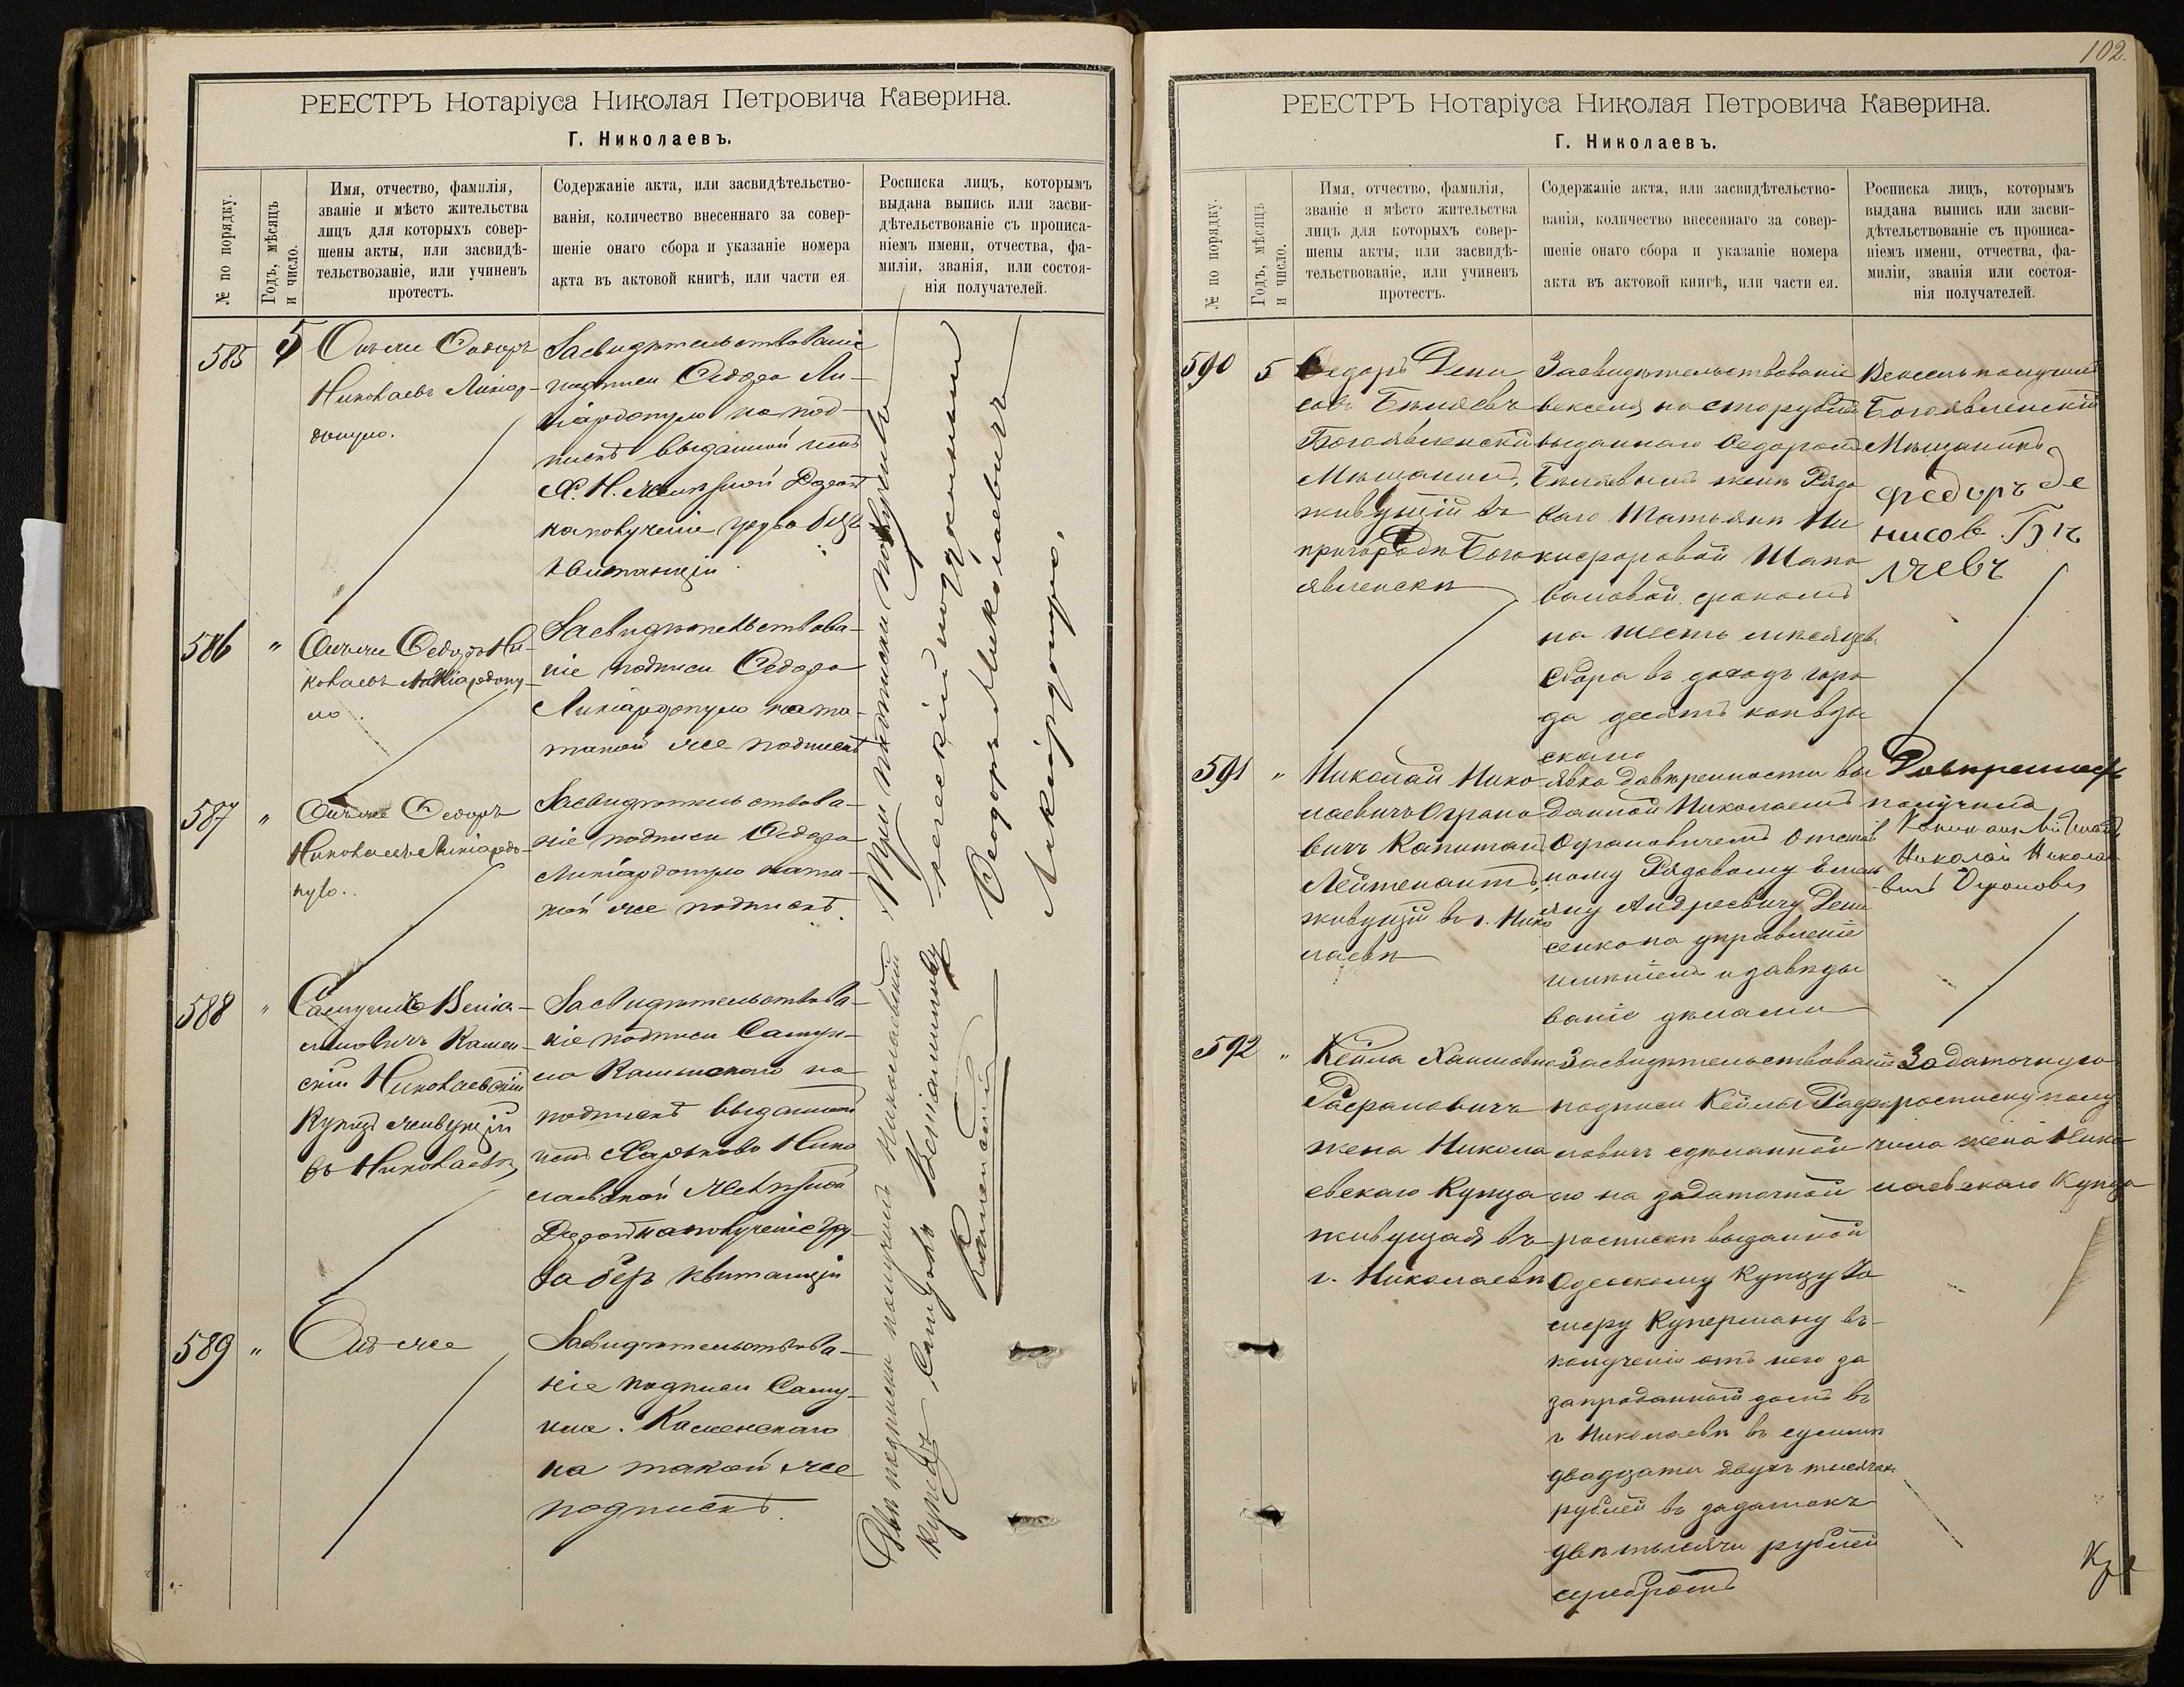 РЕЕСТРЪ Нотаріуса Николая Петровича Каверина.
Г. Николаевъ.
№ по порядку.
Годъ, мѣсяцъ
и число.
Имя, отчество, фамилія,
званіе и мѣсто жительства
лицъ для которыхъ совер-
шены акты, или засвидѣ-
тельствованіе, или учиненъ
протестъ.
Содержаніе акта, или засвидѣтельство-
ванія, количество внесеннаго за совер-
шеніе онаго сбора и указаніе номера
акта въ актовой книгѣ, или части ея.
Росписка лицъ, которымъ
выдана выпись или засви-
дѣтельствованіе съ прописа-
ніемъ имени, отчества, фа-
миліи, званія, или состоя-
нія получателей.
585
5
Николаевъ Ликіар-
допуло.
Засвидѣтельствованіе
подписи Ѳедора Ли-
кіардопуло на под-
пискѣ выданной имъ
на полученіе груза безъ
квитанціи
586
"
Онъ же Ѳедоръ Ни-
колаевъ Ликіардопу-
ло.
Засвидѣтельствова-
ніе подписи Ѳедора
Ликіардопуло на та-
такой же подпискѣ
587
"
Онъ же Ѳедоръ
Николаевъ Ликіардо-
пуло.
Засвидѣтельствова-
ніе подписи Ѳедора
Ликіардопуло на та-
кой же подпискѣ.
588
"
Самуилъ Веніа-
миновичъ Камен-
скій Николаевскій
Купецъ живущій
въ Николаевѣ
Засвидѣтельствова-
ніе подписи Самуи-
ла Каменскаго на
подпискѣ выданной
имъ Харьково Нико
лаевской Желѣзной
Дорогѣ на полученіе гру-
за безъ квитанціи
589
"
Онъ же
Засвидѣтельствова-
ніе подписи Саму-
ила. Каменскаго
на такой же
подпискѣ.
Три подписки получилъ
греческій подданный
Ѳеодоръ Николаевичъ
Ликіардопуло.
Двѣ подписки получилъ Николаевскій
купецъ Самуилъ Веніаминовъ
Каменскій
102.
РЕЕСТРЪ Нотаріуса Николая Петровича Каверина.
Г. Николаевъ.
№ по порядку.
Годъ, мѣсяцъ
и число.
Имя, отчество, фамилія,
званіе и мѣсто жительства
лицъ для которыхъ совер-
шены акты, или засвидѣ-
тельствованіе, или учиненъ
протестъ.
Содержаніе акта, или засвидѣтельство-
ванія, количество внесеннаго за совер-
шеніе онаго сбора и указаніе номера
акта въ актовой книгѣ, или части ея.
Росписка лицъ, которымъ
выдана выпись или засви-
дѣтельствованіе съ прописа-
ніемъ имени, отчества, фа-
миліи, званія или состоя-
нія получателей.
590
5
Ѳедоръ Дени
совъ Бѣляевъ
Богоявленскій
Мѣщанинъ,
живущій въ
пригородѣ Бого
явленскѣ
Засвидѣтельствованіе
векселя на сто рублей
выданнаго Ѳедоромъ
Бѣляевымъ женѣ Рядо
ваго Татьянѣ Ни
кифоровой Шапо
валовой срокомъ
на шесть мѣсяцевъ
сбора въ доходъ горо
да десять коп взы
скано
Вексель получилъ
Богоявленскій
Мѣщанинъ
Федоръ Де
нисов Бѣ
ляевъ
591
"
Николай Нико
лаевичъ Офрано
вичъ Капитанъ
Лейтенантъ,
живущій въ г. Нико
лаевѣ
Явка довѣренности вы
данной Николаемъ
Офрановичемъ Отстав
ному Рядовому Емель
яну Андреевичу Дени
сенко на управленіе
имѣніемъ и завѣды
ваніе дѣлами
Довѣренность
получилъ
Капитанъ Лейтенантъ
Николай Николае
вичъ
592
"
Кейла Хаимовна
Рафаловичъ
жена Никола
евскаго Купца
живущая въ
г. Николаевѣ
Засвидѣтельствованіе
подписи Кейлы Рафа
ловичъ сдѣланной
ею на задаточной
роспискѣ выданной
Одесскому Купцу Іо
сифу Куперману въ
полученіи отъ него за
запроданный домъ въ
г Николаевѣ въ суммѣ
двадцати двухъ тысячъ
рублей въ задатокъ
двѣ тысячи рублей
серебромъ
Задаточную
росписку полу
чила жена Нико
лаевскаго Купца